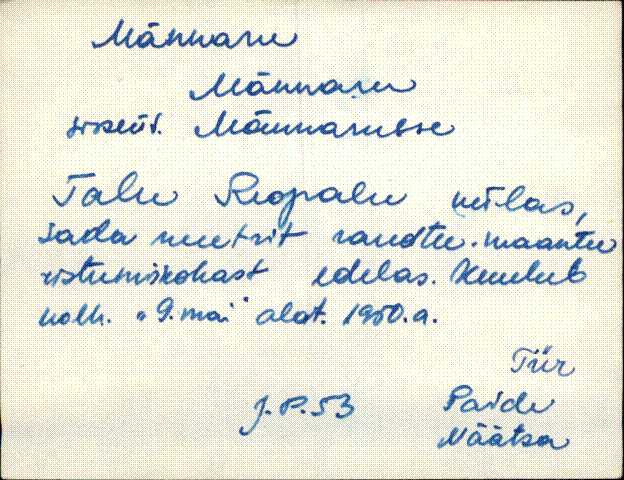 Männaru
Männaru
sisseüt. Männarusse
Talu Ruopalu külas,
sada meetrit raudtee-maantee
ristumiskohast edelas. Kuulub
kolh. "9. mai" alat. 1950.a.
Tür
J.P.53 Paide
Näätsa